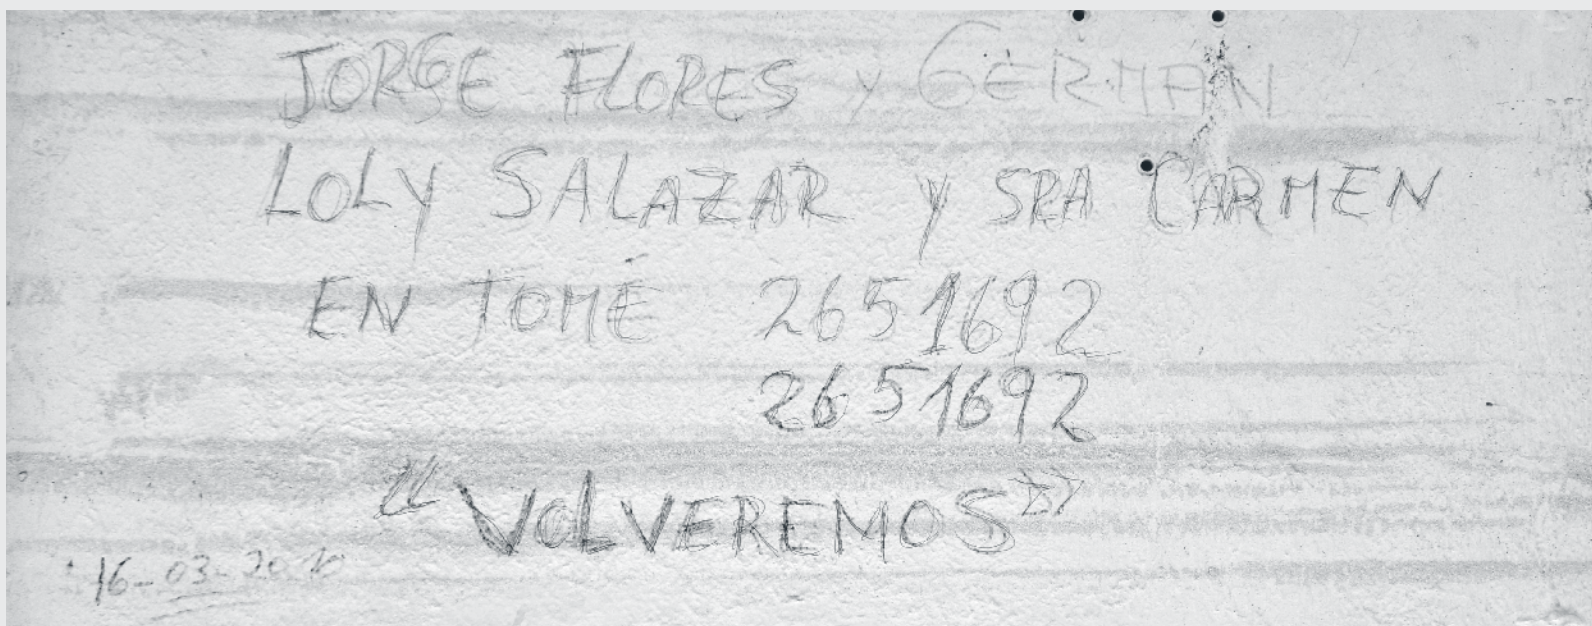 JORGE FLORES y GERMAN
LOLY SALAZAR y SRA CARMEN
EN TOMÉ 2651692
2651692
"VOLVEREMOS"
16-03-2010